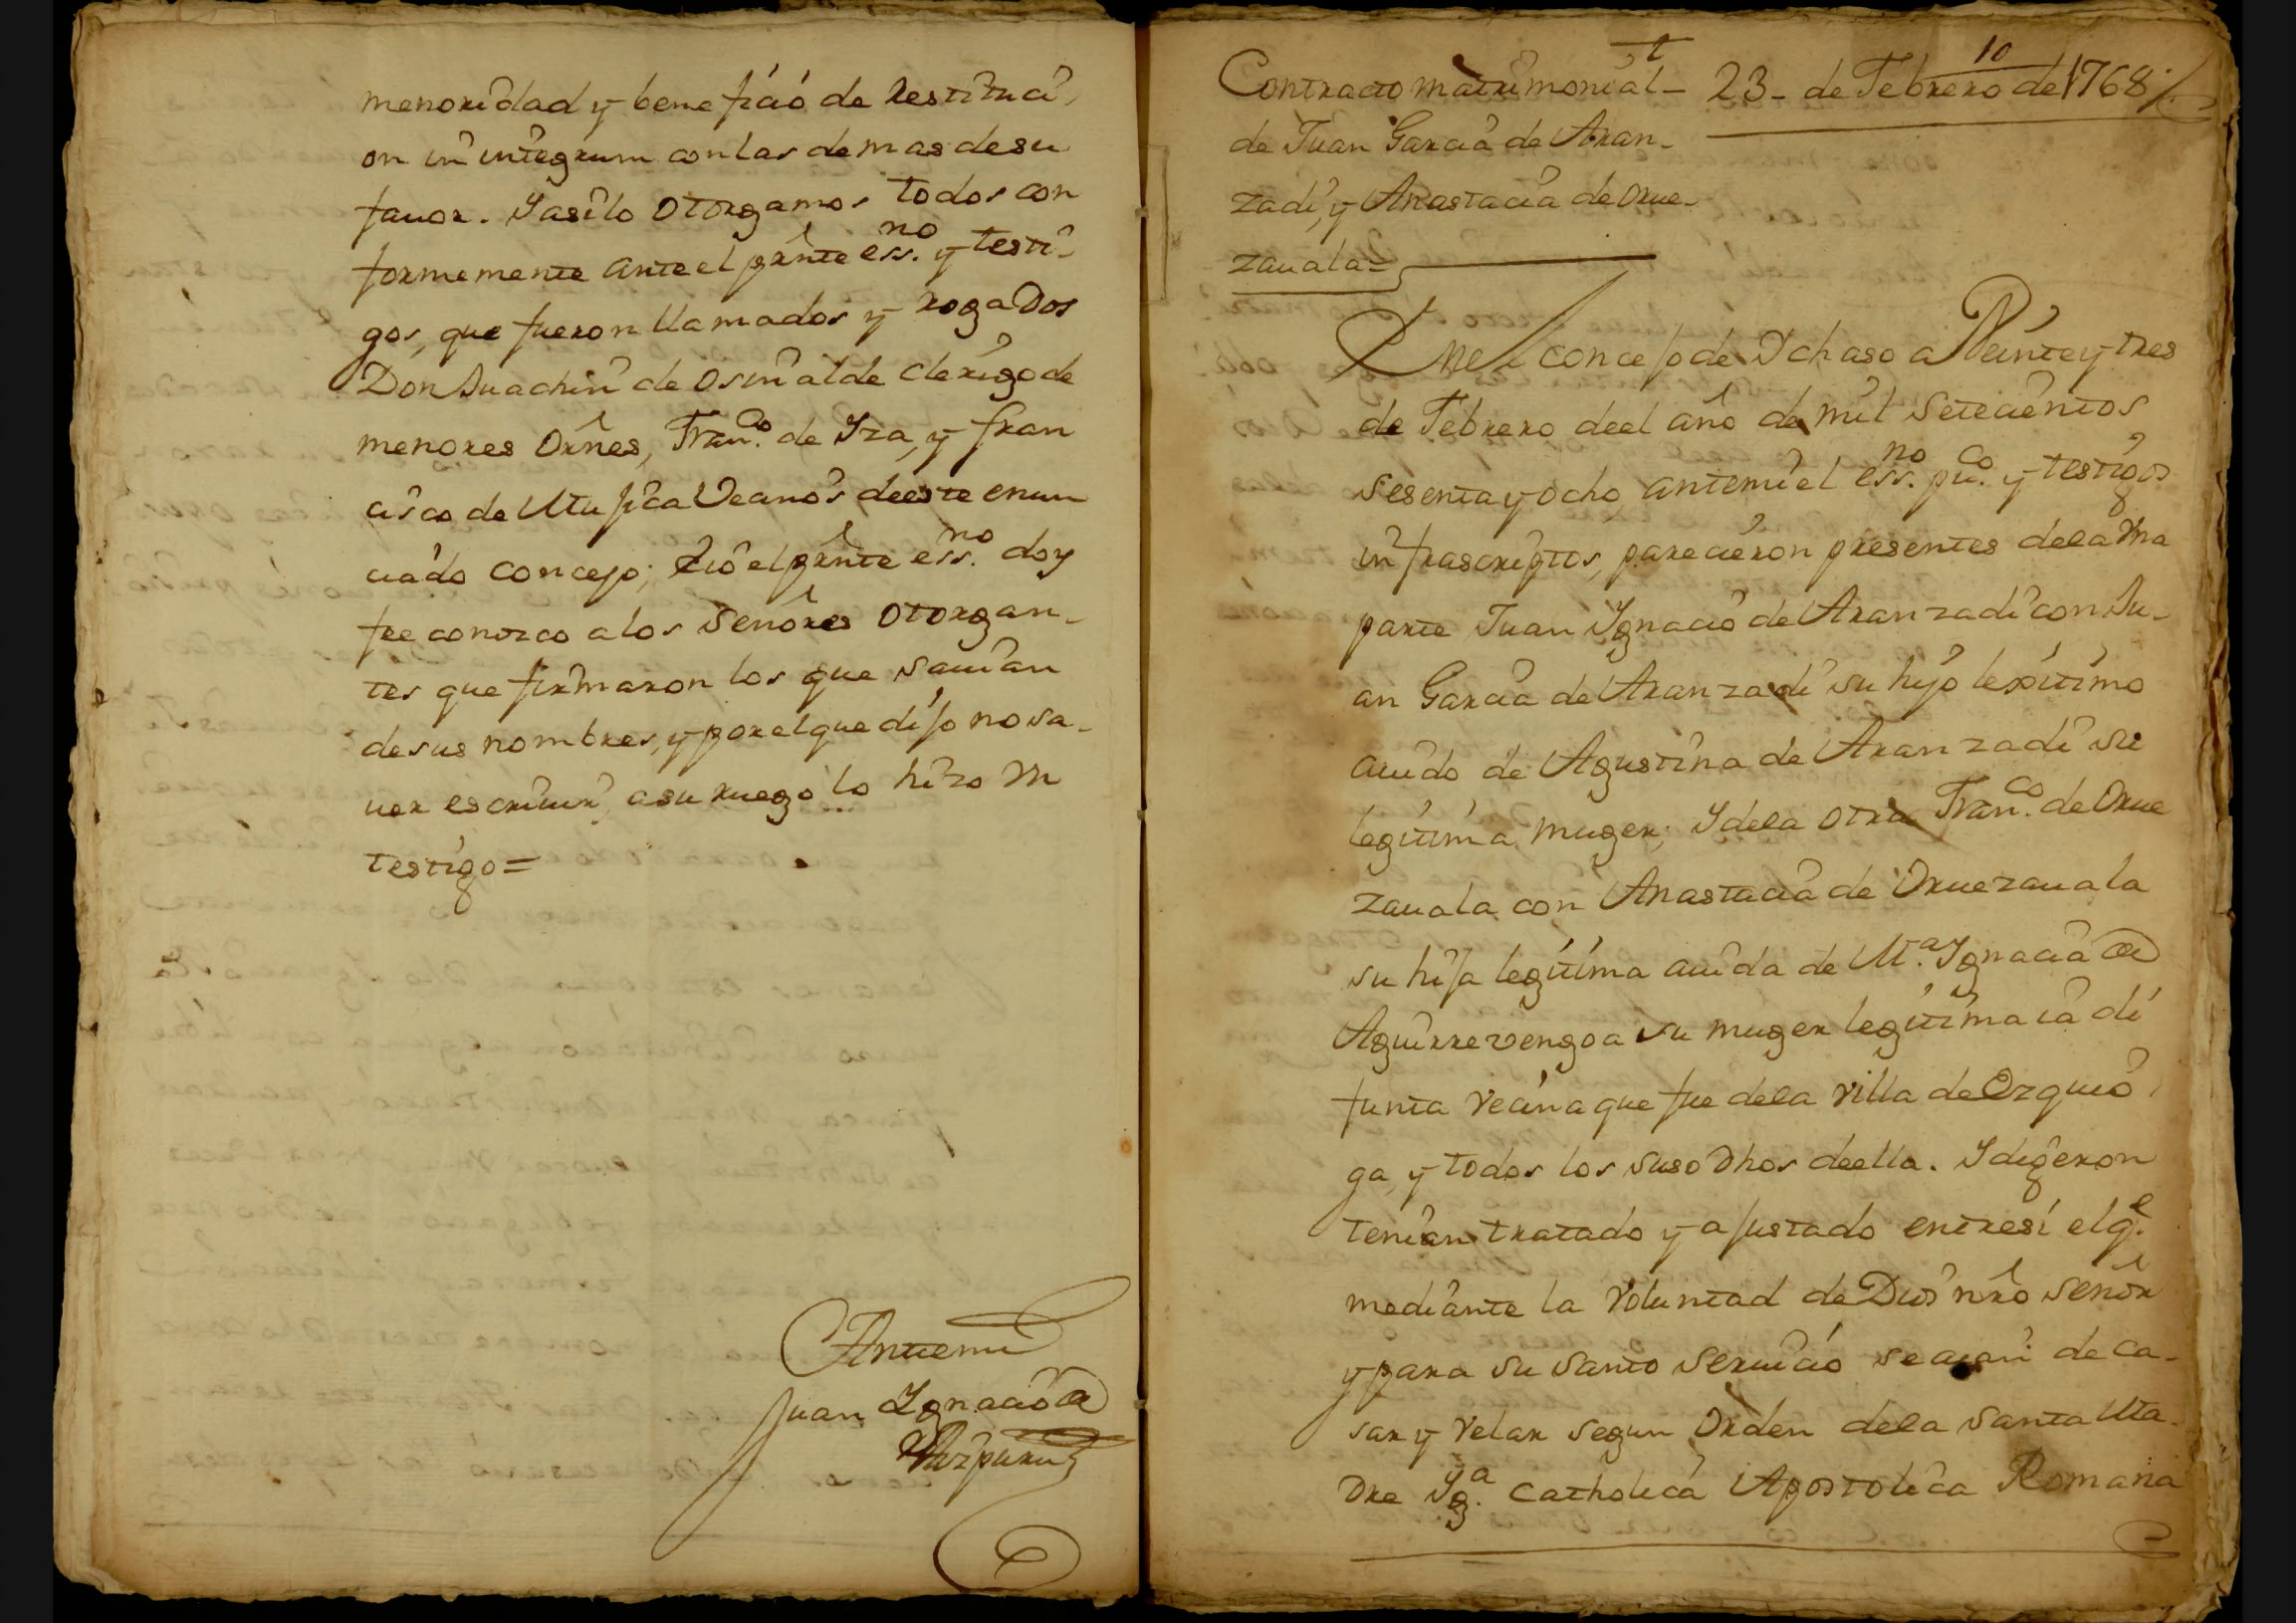 menoridad y beneficio de Restituci-
on in integrum con las demas de su
fauor. Y asi lo Otorgamos todos con
formemente ante el prnte ess.no y testi-
gos, que fueron llamados y rogados
Don Juachin de Osinalde Clerigo de
menores Ornes, Fran.co de Yza, y fran
cisco de Vecinos de este enun
ciado Concejo; Y io el prnte ess.no doy
fee conozco a los Señores Otorgan-
tes que firmaron los que sauian
de sus nombres, y por el que dijo no sa-
uer escriuir, a su ruego lo hizo Vn
testigo=
Antemi
Juan Ygnacio de
10
Contracto matrimonial - 23 - de Febrero de 1768
de Juan Garcia de Aran-
zadi, y Anastacia de Orue-
zauala=
En el Concejo de Ychaso a Veinte y tres
de Febrero de el año de mil Setecientos
Sesenta y ocho, ante mi el ess.no pu.co y testigos
infrascriptos, parecieron presentes de la Vna
parte Juan Ygnacio de Aranzadi con Ju-
an Garcia de Aranzadi su hijo lexitimo
auido de Agustina de Aranzadi su
legitima muger; Y de la otra Fran.co de Orue
zauala con Anastacia de Oruezauala
su hija legitima auida de M.a Ygnacia de
Aguirrevengoa su muger legitima ia di
funta Vecina que fue de la Villa de Ezquio
ga, y todos los suso dhos de ella. Y digeron
tenian tratado y ajustado entre si el q.e
mediante la Voluntad de Dios nro Señor
y para su Santo Seruicio se aian de ca-
sar y Velar segun Orden de la Santa Ma-
dre Yg.a Catholica Apostolica Romana